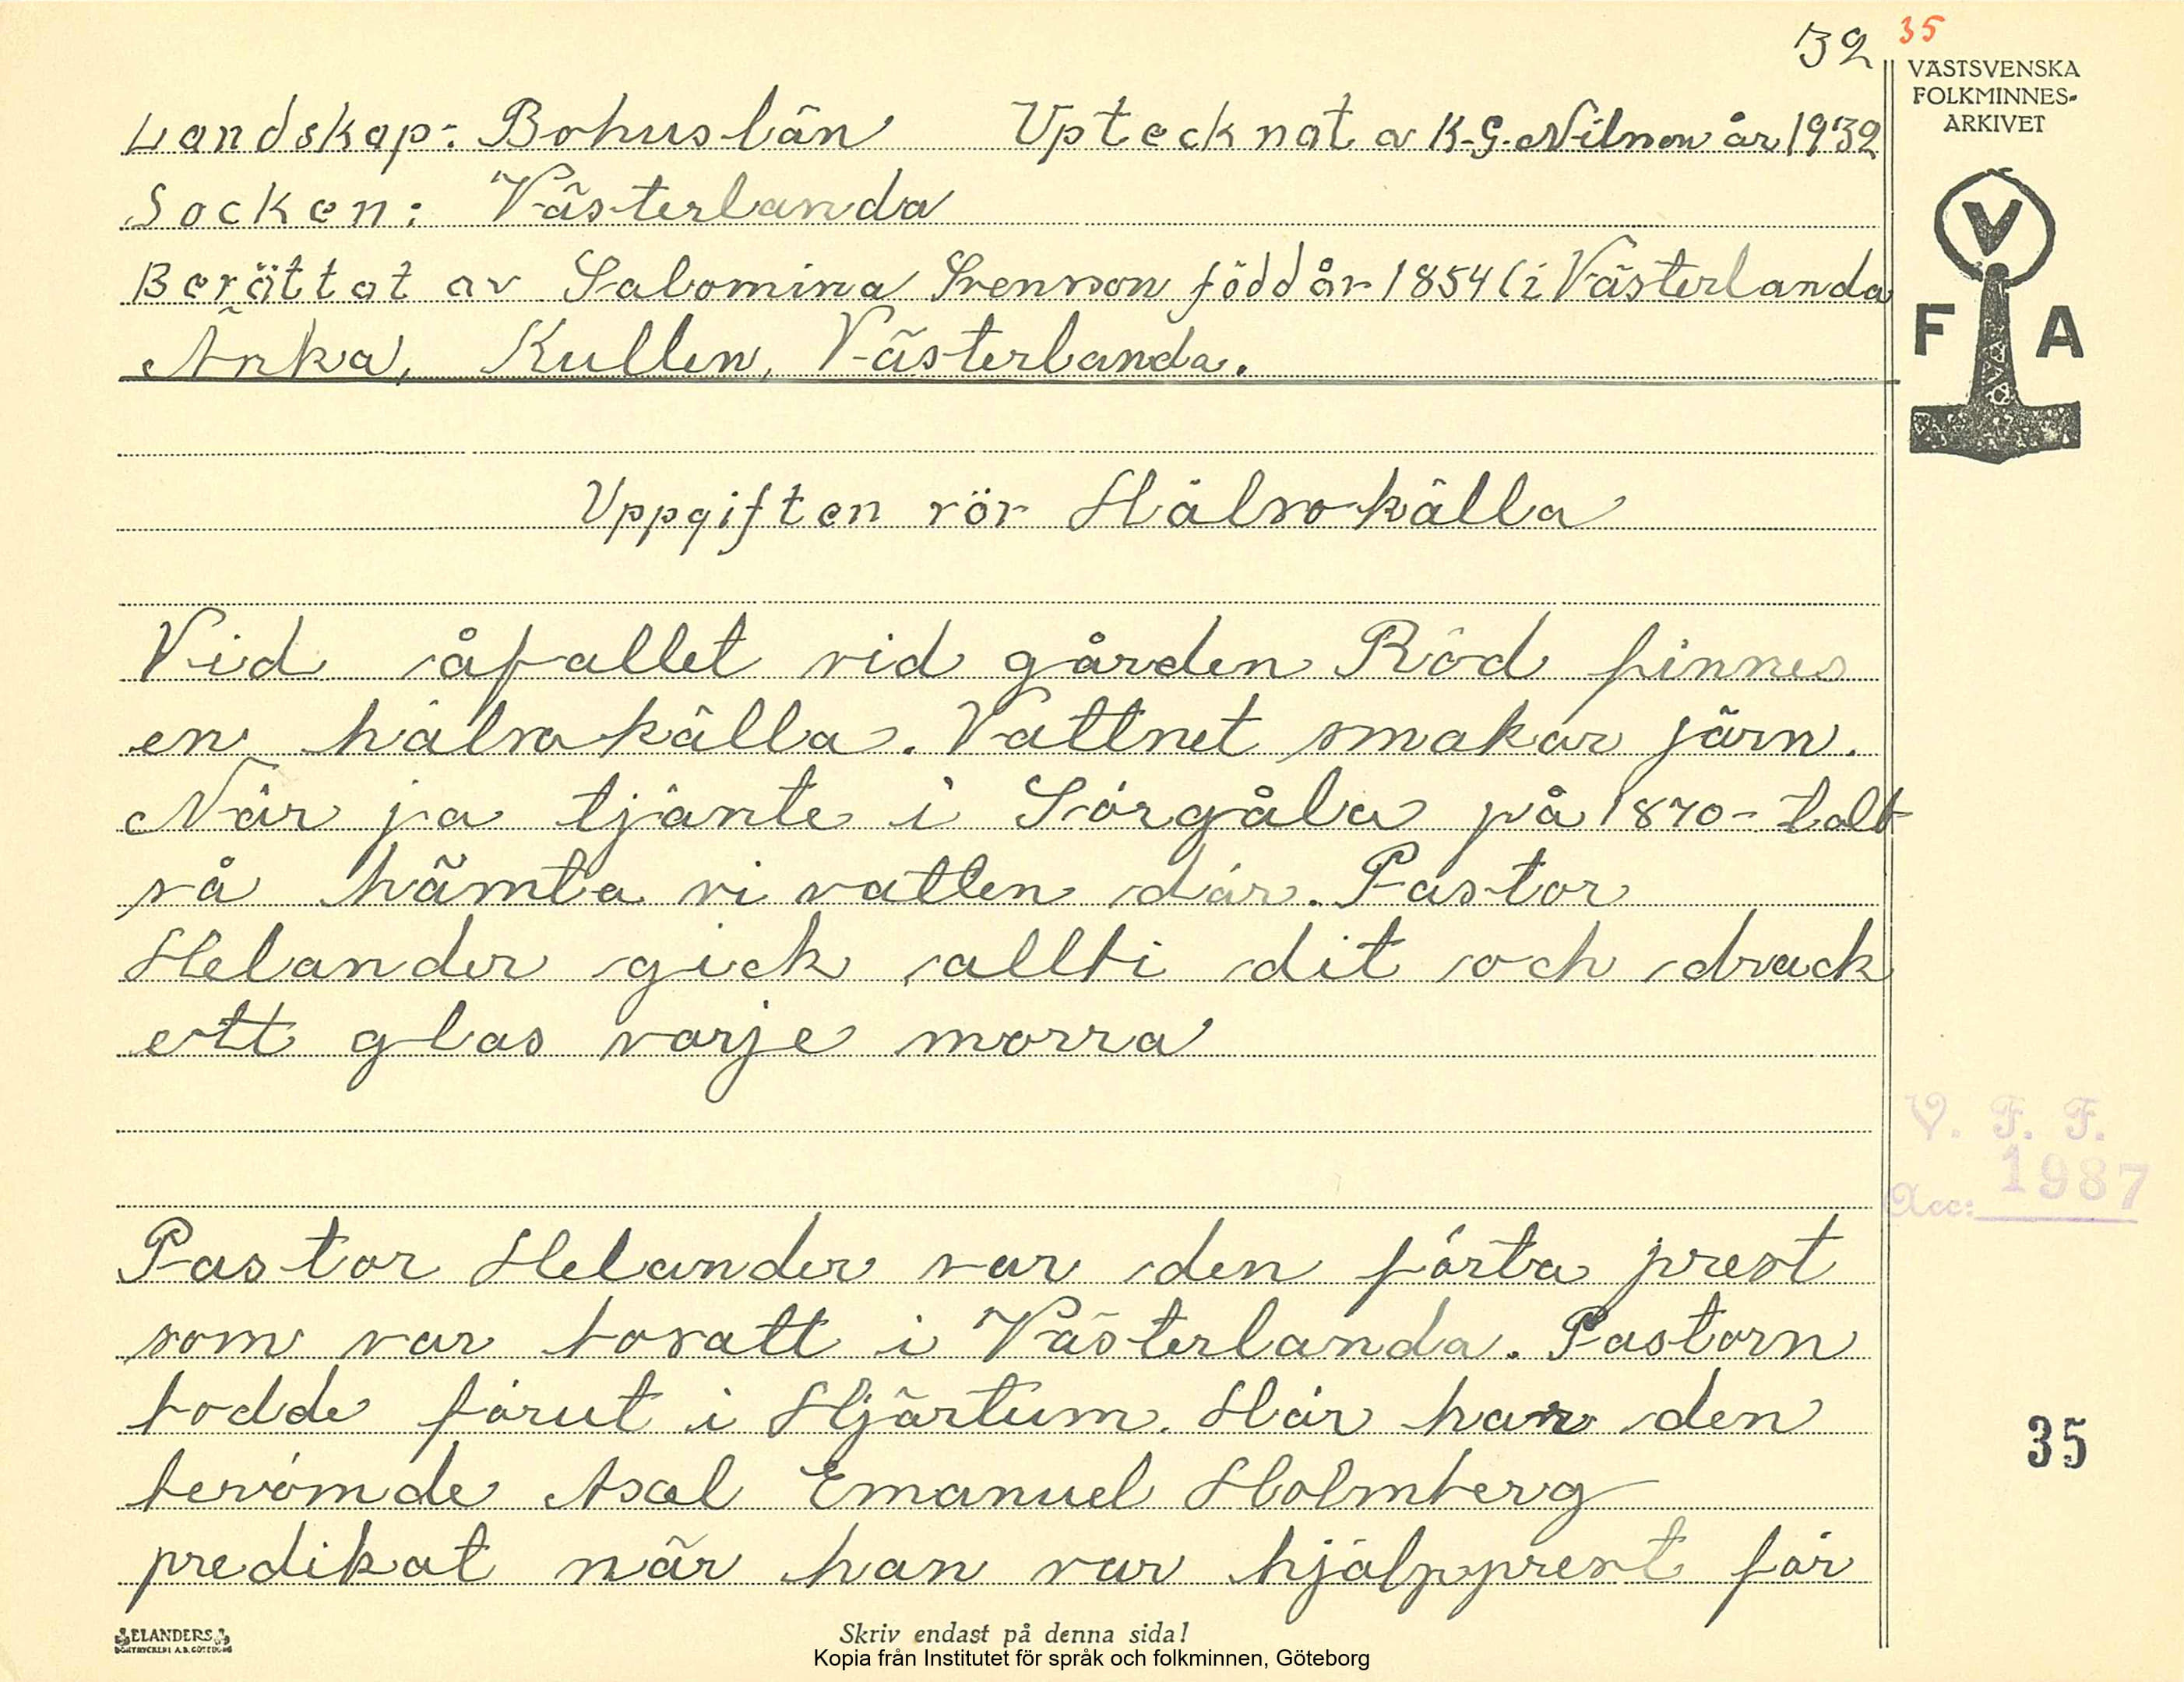 32 35
VÄSTSVENSKA
FOLKMINNES-
ARKIVET
Landskap: Bohuslän Uptecknat a K-G. Nilson år 1932
Socken: Västerlanda
Berättat av Salomina Svenson född år 1854 (i Västerlanda
Änka, Kullen, Västerlanda.
V
F A
Uppgiften rör Hälsokälla
Vid åfallet vid gården Röd finnes
en hälsokälla. Vattnet smakar järn.
När ja tjänte i Sörgåla på 1870-talt
så hämta vi vatten där. Pastor
Helander gick allti dit och drack
ett glas varje morra
V. F. F.
1987
Acc:
Pastor Helander var den förta prest
som var bosatt i Västerlanda. Pastorn
bodde förut i Hjärtum. Här har den
berömde Axel Emanuel Holmberg
predikat när han var hjälpprest för
35
ELANDERS
BOKTRYCKERI A.B. GÖTEBORG
Skriv endast på denna sida!
Kopia från Institutet för språk och folkminnen, Göteborg